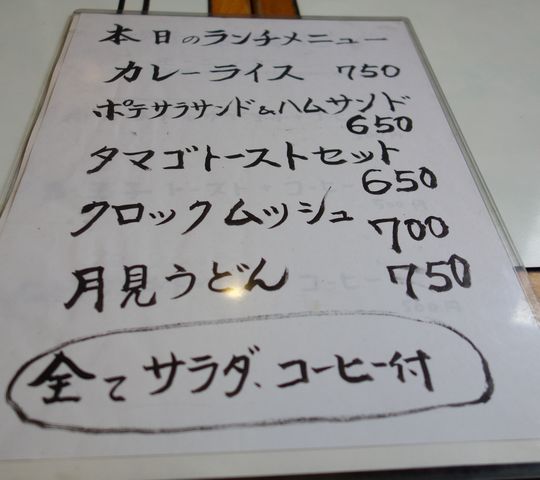 本日のランチメニュー
カレーライス 750
ポテサラサンド&ハムサンド
650
タマゴトーストセット
650
クロックムッシュ 700
月見うどん 750
全てサラダ、コーヒー付